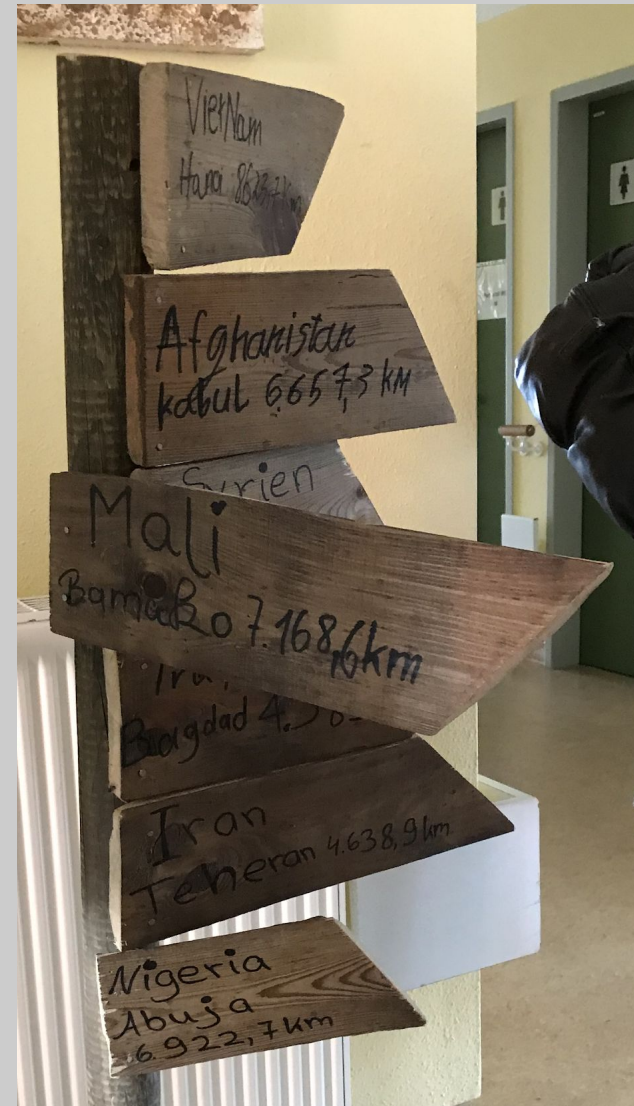 VietNam
Hanoi 8623,7 km
Afghanistan
kabul 6.657,3 KM
Syrien
Mali
Bamako 7.168,6 km
Bagdad
Iran
Teheran 4.638,9 km
Nigeria
Abuja
6.922,7 km